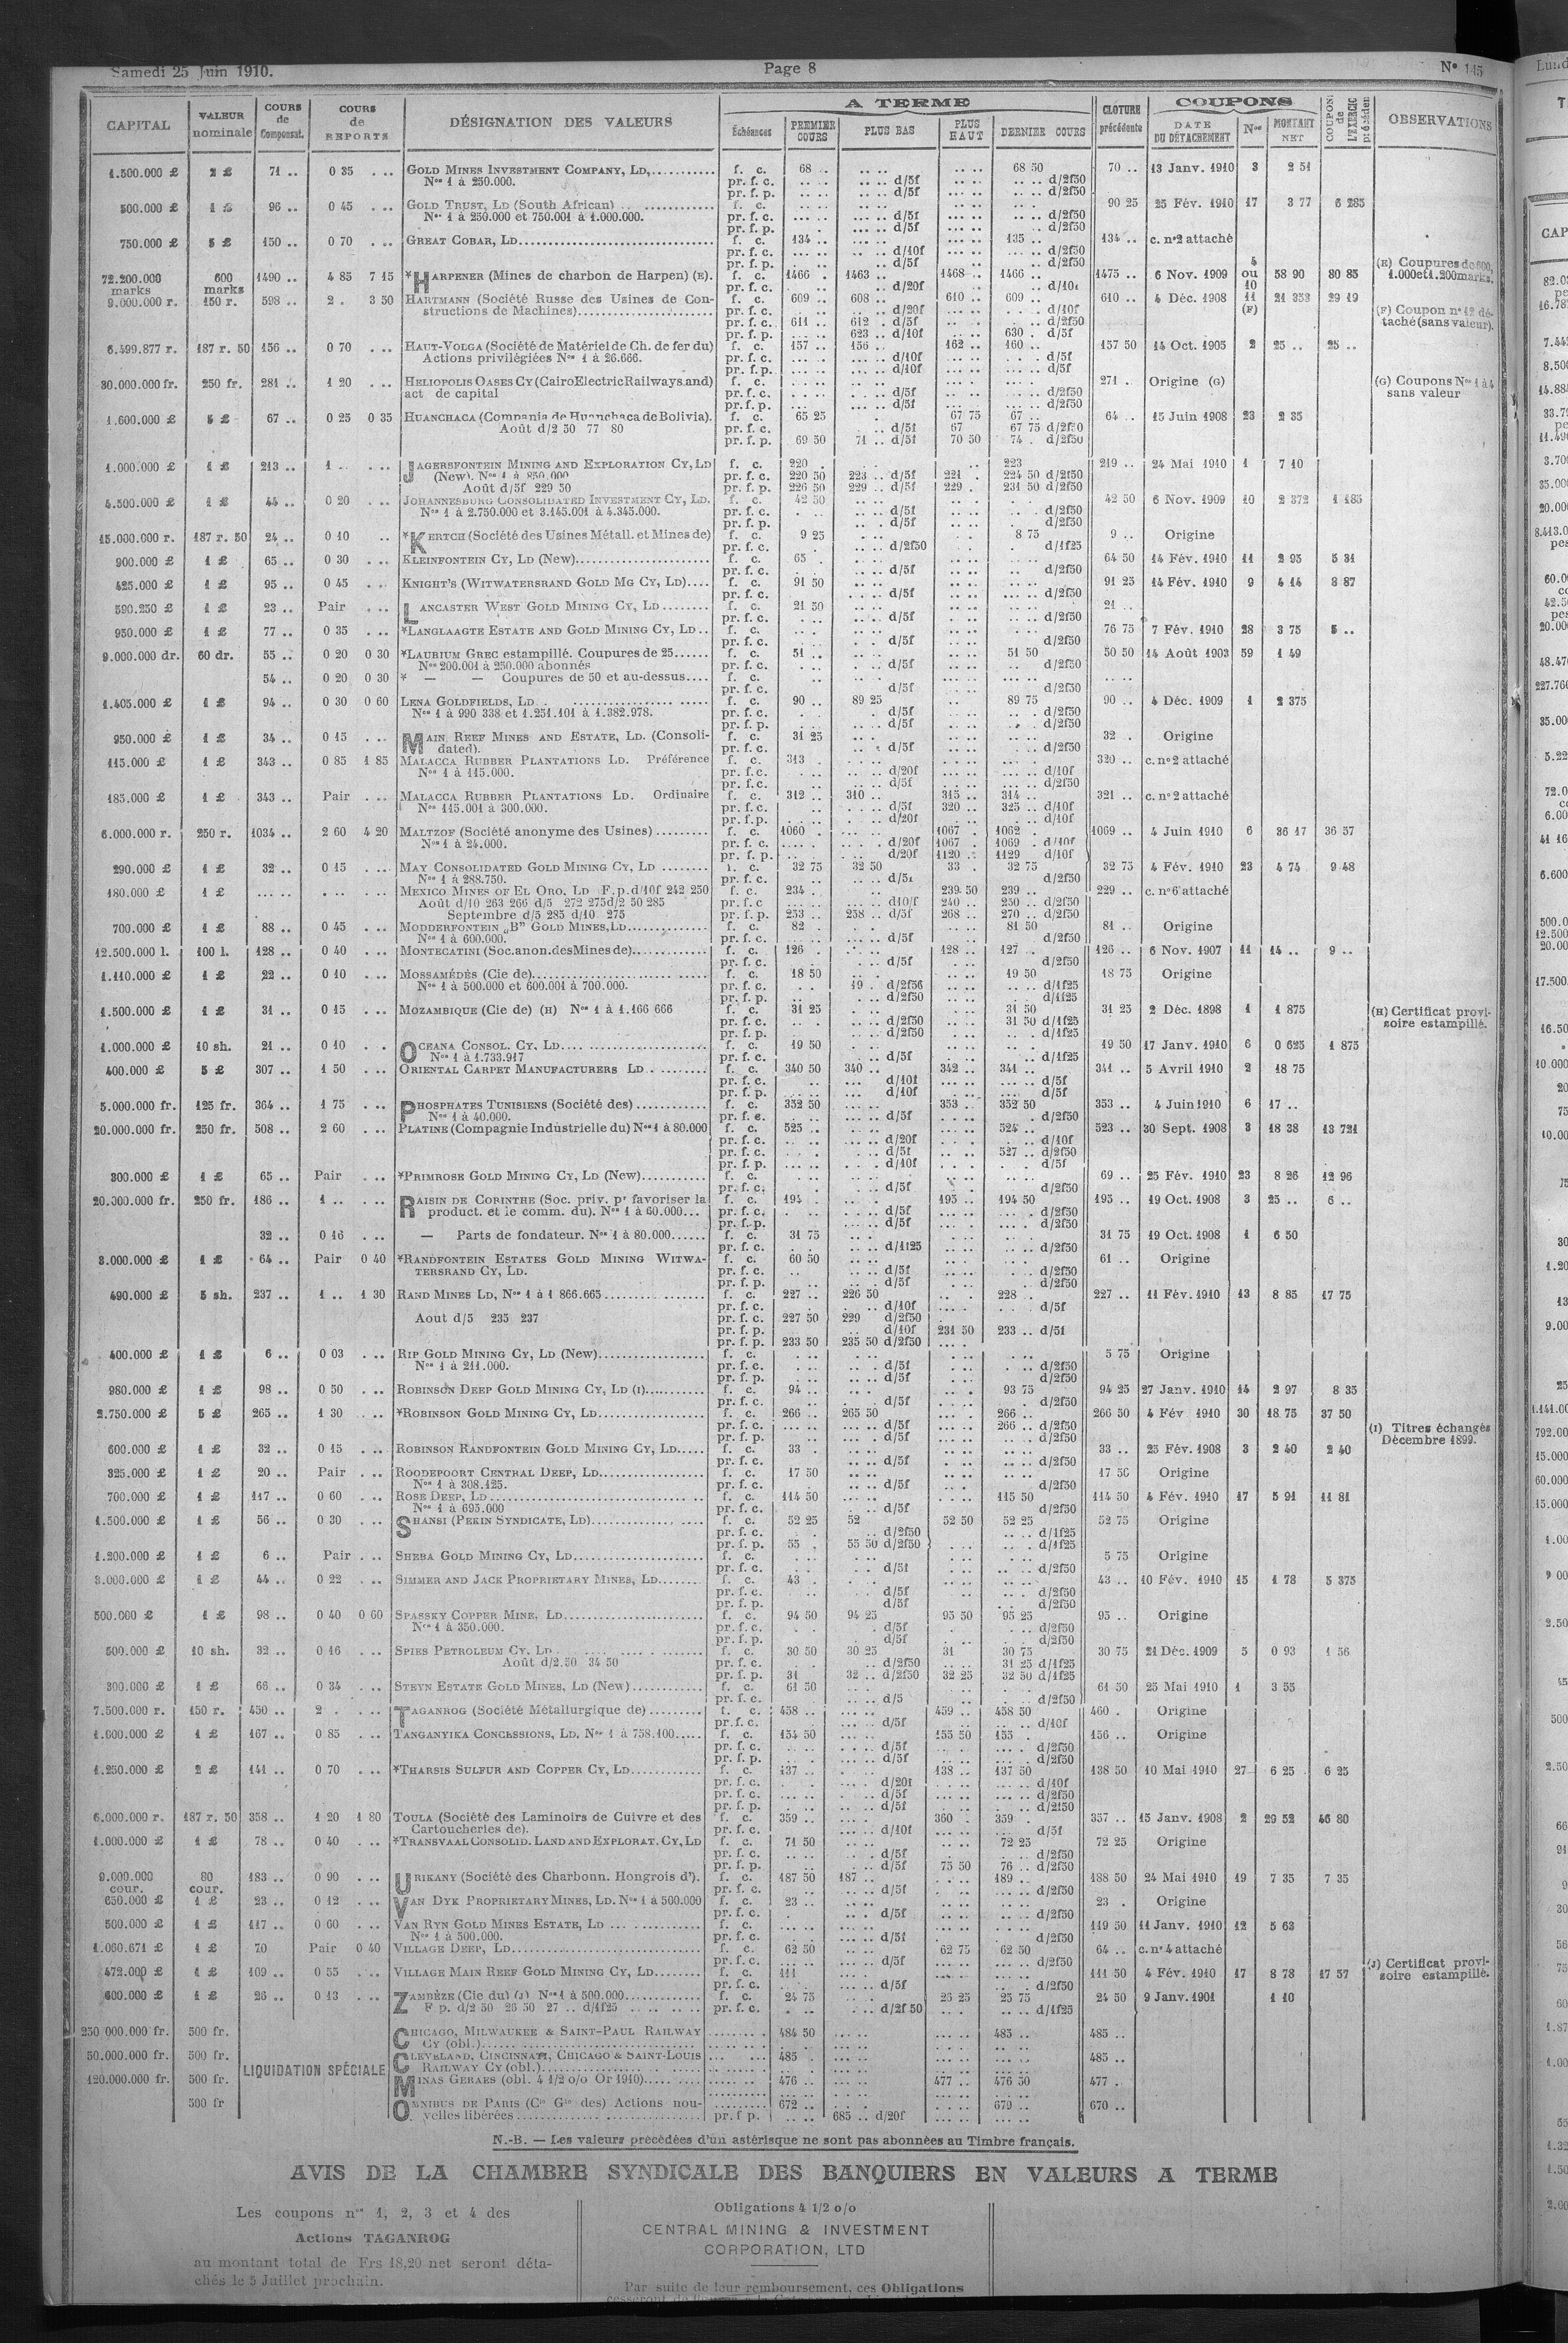 Samedi 25 Juin 1910. Page 8 N° 145
CAPITAL VALEUR nominale COURS de Compensat. COURS de REPORTS DÉSIGNATION DES VALEURS A TERME CLÔTURE précédente COUPONS OBSERVATIONS
Échéances PREMIER COURS PLUS BAS PLUS HAUT DERNIER COURS DATE DU DÉTACHEMENT Nos MONTANT NET
1.500.000 £ 2 £ 71 .. 0 35 . .. GOLD MINES INVESTMENT COMPANY, LD,........... f. c. 68 .. 68 50 70 .. 13 Janv. 1910 3 2 51
Nos 1 à 250.000. pr. f. c. d/5f d/2f50
pr. f. p. d/5f d/2f50
500.000 £ 1 £ 96 .. 0 45 . .. GOLD TRUST, LD (South African) f. c. 90 25 25 Fév. 1910 17 3 77 6 285
Nos 1 à 250.000 et 750.001 à 1.000.000. pr. f. c. d/5f d/2f50
pr. f. p. d/5f d/2f50
750.000 £ 5 £ 150 .. 0 70 . .. GREAT COBAR, LD f. c. 134 .. 135 .. 134 .. c. n°2 attaché
pr. f. c. d/10f d/2f50
pr. f. p. d/5f d/2f50
72.200.000 marks 600 marks 1490 .. 4 85 7 15 *HARPENER (Mines de charbon de Harpen) (E). f. c. 1466 .. 1463 .. 1468 .. 1466 .. 1475 .. 6 Nov. 1909 4 ou 10 58 90 80 85 (E) Coupures de 600, 1.000 et 1.200 marks.
pr. f. c. d/20f d/10f
9.000.000 r. 150 r. 598 .. 2 . 3 50 HARTMANN (Société Russe des Usines de Con- f. c. 609 .. 608 .. 610 .. 609 .. 610 .. 4 Déc. 1908 11 (F) 21 353 29 19
structions de Machines) pr. f. c. d/20f d/10f (F) Coupon n° 12 dé-
pr. f. c. 611 .. 612 . d/5f d/2f50 taché (sans valeur).
pr. f. p. 623 .. d/10f 630 . d/5f
6.599.877 r. 187 r. 50 156 .. 0 70 . .. HAUT-VOLGA (Société de Matériel de Ch. de fer du) f. c. 157 .. 156 .. 162 .. 160 .. 157 50 14 Oct. 1905 2 25 .. 25 ..
Actions privilégiées Nos 1 à 26.666. pr. f. c. d/10f d/5f
pr. f. p. d/10f d/5f
30.000.000 fr. 250 fr. 281 .. 1 20 . .. HELIOPOLIS OASES CY (Cairo Electric Railways and) f. c. 271 . Origine (G) (G) Coupons Nos 1 à 4
act de capital pr. f. c. d/5f d/2f50 sans valeur
pr. f. p. d/5f d/2f50
1.600.000 £ 5 £ 67 .. 0 25 0 35 HUANCHACA (Compania de Huanchaca de Bolivia). f. c. 65 25 67 75 67 .. 64 .. 15 Juin 1908 23 2 35
Août d/2 50 77 80 pr. f. c. d/5f 67 67 75 d/2f50
pr. f. p. 69 50 71 .. d/5f 70 50 74 . d/2f50
1.000.000 £ 1 £ 213 .. 1 .. . .. JAGERSFONTEIN MINING AND EXPLORATION CY, LD f. c. 220 . 223 219 .. 24 Mai 1910 1 7 10
(New). Nos 1 à 850.000 pr. f. c. 220 50 223 .. d/5f 221 . 224 50 d/2f50
Août d/5f 229 50 pr. f. p. 226 50 229 .. d/5f 229 . 231 50 d/2f50
4.500.000 £ 1 £ 44 .. 0 20 . .. JOHANNESBURG CONSOLIDATED INVESTMENT CY, LD. f. c. 42 50 42 50 6 Nov. 1909 10 2 372 1 185
Nos 1 à 2.750.000 et 3.145.001 à 4.345.000. pr. f. c. d/5f d/2f50
pr. f. p. d/5f d/2f50
15.000.000 r. 187 r. 50 24 .. 0 10 .. *KERTCH (Société des Usines Métall. et Mines de) f. c. 9 25 8 75 9 .. Origine
pr. f. c. d/2f50 d/1f25
900.000 £ 1 £ 65 .. 0 30 . .. KLEINFONTEIN CY, LD (New) f. c. 65 . 64 50 14 Fév. 1910 11 2 95 5 31
pr. f. c. d/5f d/2f50
425.000 £ 1 £ 95 .. 0 45 . .. KNIGHT'S (WITWATERSRAND GOLD MG CY, LD) f. c. 91 50 91 25 14 Fév. 1910 9 4 14 8 87
pr. f. c. d/5f d/2f50
590.250 £ 1 £ 23 .. Pair . .. LANCASTER WEST GOLD MINING CY, LD f. c. 21 50 21 ..
pr. f. c. d/5f d/2f50
950.000 £ 1 £ 77 .. 0 35 . .. *LANGLAAGTE ESTATE AND GOLD MINING CY, LD f. c. 76 75 7 Fév. 1910 28 3 75 5 ..
pr. f. c. d/5f d/2f50
9.000.000 dr. 60 dr. 55 .. 0 20 0 30 *LAURIUM GREC estampillé. Coupures de 25 f. c. 51 .. 51 50 50 50 14 Août 1903 59 1 49
Nos 200.001 à 250.000 abonnés pr. f. c. d/5f d/2f50
54 .. 0 20 0 30 * — — Coupures de 50 et au-dessus f. c.
pr. f. c. d/5f d/2f50
1.405.000 £ 1 £ 94 .. 0 30 0 60 LENA GOLDFIELDS, LD f. c. 90 .. 89 25 89 75 90 .. 4 Déc. 1909 1 2 375
Nos 1 à 990 338 et 1.251.101 à 1.382.978. pr. f. c. d/5f d/2f50
pr. f. p. d/5f d/2f50
950.000 £ 1 £ 34 .. 0 15 . .. MAIN REEF MINES AND ESTATE, LD. (Consoli- f. c. 31 25 32 . Origine
dated). pr. f. c. d/5f d/2f50
115.000 £ 1 £ 343 .. 0 85 1 85 MALACCA RUBBER PLANTATIONS LD. Préférence f. c. 313 320 .. c. n°2 attaché
Nos 1 à 115.000. pr. f. c. d/20f d/10f
pr. f. c. d/5f d/2f50
185.000 £ 1 £ 343 .. Pair . .. MALACCA RUBBER PLANTATIONS LD. Ordinaire f. c. 312 .. 310 .. 315 .. 314 .. 321 .. c. n°2 attaché
Nos 115.001 à 300.000. pr. f. c. d/5f 320 .. 325 .. d/10f
pr. f. p. d/20f d/10f
6.000.000 r. 250 r. 1034 .. 2 60 4 20 MALTZOF (Société anonyme des Usines) f. c. 1060 . 1067 . 1062 . 1069 .. 4 Juin 1910 6 36 17 36 57
Nos 1 à 24.000. pr. f. c. d/20f 1067 . 1069 . d/10f
pr. f. p. d/20f 1120 .. 1129 d/10f
290.000 £ 1 £ 32 .. 0 15 . .. MAY CONSOLIDATED GOLD MINING CY, LD f. c. 32 75 32 50 33 . 32 75 32 75 4 Fév. 1910 23 4 74 9 48
Nos 1 à 288.750. pr. f. c. d/5f d/2f50
180.000 £ 1 £ MEXICO MINES OF EL ORO, LD F.p. d/10f 242 250 f. c. 234 . 239. 50 239 .. 229 .. c. n°6 attaché
Août d/10 263 266 d/5 272 275 d/2 50 285 pr. f. c d10/f 240 .. 250 .. d/2f50
Septembre d/5 285 d/10 275 pr. f. p. 253 .. 258 .. d/5f 268 .. 270 .. d/2f50
700.000 £ 1 £ 88 .. 0 45 . .. MODDERFONTEIN „B" GOLD MINES, LD f. c. 82 . 81 50 81 .. Origine
Nos 1 à 600.000. pr. f. c. d/5f d/2f50
12.500.000 l. 100 l. 128 .. 0 40 . .. MONTECATINI (Soc. anon. des Mines de) f. c. 126 . 128 .. 127 .. 126 .. 6 Nov. 1907 11 14 .. 9 ..
pr. f. c. d/5f d/2f50
1.110.000 £ 1 £ 22 .. 0 10 . .. MOSSAMÉDÈS (Cie de) f. c. 18 50 19 50 18 75 Origine
Nos 1 à 500.000 et 600.001 à 700.000. pr. f. c. 19 . d/2f56 d/1f25
pr. f. p. d/2f50 d/1f25
1.500.000 £ 1 £ 31 .. 0 15 . .. MOZAMBIQUE (Cie de) (H) Nos 1 à 1.166 666 f. c. 31 25 31 50 31 25 2 Déc. 1898 1 1 875 (H) Certificat provi-
pr. f. c. d/2f50 31 50 d/1f25 soire estampillé.
pr. f. p. d/2f50 d/1f25
1.000.000 £ 10 sh. 21 .. 0 10 . . OCEANA CONSOL. CY. LD f. c. 19 50 19 50 17 Janv. 1910 6 0 625 1 875
Nos 1 à 1.733.917 pr. f. c. d/5f d/1f25
400.000 £ 5 £ 307 .. 1 50 . .. ORIENTAL CARPET MANUFACTURERS LD f. c. 340 50 340 .. 342 .. 341 .. 341 .. 5 Avril 1910 2 18 75
pr. f. c. d/10f d/5f
pr. f. p. d/10f d/5f
5.000.000 fr. 125 fr. 364 .. 1 75 . .. PHOSPHATES TUNISIENS (Société des) f. c. 352 50 353 .. 352 50 353 .. 4 Juin 1910 6 17 ..
Nos 1 à 40.000. pr. f. c. d/5f d/2f50
20.000.000 fr. 250 fr. 508 .. 2 60 . .. PLATINE (Compagnie Industrielle du) Nos 1 à 80.000 f. c. 525 .. 524 .. 523 .. 30 Sept. 1908 3 18 38 13 721
pr. f. c. d/20f d/10f
pr. f. c. d/5f 527 .. d/2f50
pr. f. p. d/10f d/5f
300.000 £ 1 £ 65 .. Pair . .. *PRIMROSE GOLD MINING CY, LD (New) f. c. 69 .. 25 Fév. 1910 23 8 26 12 96
pr. f. c. d/5f d/2f50
20.300.000 fr. 250 fr. 186 .. 1 .. . .. RAISIN DE CORINTHE (Soc. priv. pr favoriser la f. c. 194 195 .. 194 50 195 .. 19 Oct. 1908 3 25 .. 6 ..
product. et le comm. du). Nos 1 à 60.000... pr. f. c. d/5f d/2f50
pr. f. p. d/5f d/2f50
32 .. 0 16 . .. — Parts de fondateur. Nos 1 à 80.000 f. c. 31 75 31 75 19 Oct. 1908 1 6 50
pr. f. c. d/1f25 d/2f50
3.000.000 £ 1 £ 64 .. Pair 0 40 *RANDFONTEIN ESTATES GOLD MINING WITWA- f. c. 60 50 61 .. Origine
TERSRAND CY, LD. pr. f. c. d/5f d/2f50
pr. f. p. d/5f d/2f50
490.000 £ 5 sh. 237 .. 1 .. 1 30 RAND MINES LD, Nos 1 à 1 866.665 f. c. 227 .. 226 50 228 .. 227 .. 11 Fév. 1910 13 8 85 17 75
pr. f. c. d/10f d/5f
Aout d/5 235 237 pr. f. c. 227 50 229 d/2f50
pr. f. p. d/10f 231 50 233 .. d/5f
pr. f. p. 233 50 235 50 d/2f50
400.000 £ 1 £ 6 .. 0 03 . .. RIP GOLD MINING CY, LD (New) f. c. 5 75 Origine
Nos 1 à 211.000. pr. f. c. d/5f d/2f50
pr. f. p. d/5f d/2f50
980.000 £ 1 £ 98 .. 0 50 . .. ROBINSON DEEP GOLD MINING CY, LD (I) f. c. 94 .. 93 75 94 25 27 Janv. 1910 14 2 97 8 35
pr. f. c. d/5f d/2f50
2.750.000 £ 5 £ 265 .. 1 30 . .. *ROBINSON GOLD MINING CY, LD f. c. 266 .. 265 50 266 .. 266 50 4 Fév 1910 30 18 75 37 50
pr. f. c. d/5f 266 .. d/2f50 (I) Titres échangés
pr. f. p. d/5f d/2f50 Décembre 1899.
600.000 £ 1 £ 32 .. 0 15 . .. ROBINSON RANDFONTEIN GOLD MINING CY, LD f. c. 33 . 33 .. 25 Fév. 1908 3 2 40 2 40
pr. f. c. d/5f d/2f50
325.000 £ 1 £ 20 .. Pair . .. ROODEPOORT CENTRAL DEEP, LD f. c. 17 50 17 50 Origine
Nos 1 à 308.125. pr. f. c. d/5f d/2f50
700.000 £ 1 £ 117 .. 0 60 . .. ROSE DEEP, LD f. c. 114 50 115 50 114 50 4 Fév. 1910 17 5 91 11 81
Nos 1 à 695.000 pr. f. c. d/5f d/2f50
1.500.000 £ 1 £ 56 .. 0 30 . .. SHANSI (PEKIN SYNDICATE, LD) f. c. 52 25 52 52 50 52 25 52 75 Origine
pr. f. c. d/2f50 d/1f25
pr. f. p. 55 . 55 50 d/2f50 d/1f25
1.200.000 £ 1 £ 6 .. Pair . .. SHEBA GOLD MINING CY, LD f. c. 5 75 Origine
pr. f. c. d/5f d/2f50
3.000.000 £ 1 £ 44 .. 0 22 . .. SIMMER AND JACK PROPRIETARY MINES, LD f. c. 43 . 43 .. 10 Fév. 1910 15 1 78 5 375
pr. f. c. d/5f d/2f50
pr. f. p. d/5f d/2f50
500.000 £ 1 £ 98 .. 0 40 0 60 SPASSKY COPPER MINE, LD f. c. 94 50 94 25 95 50 95 25 95 .. Origine
Nos 1 à 350.000. pr. f. c. d/5f d/2f50
pr. f. p. d/5f d/2f50
500.000 £ 10 sh. 32 .. 0 16 . .. SPIES PETROLEUM CY. LD f. c. 30 50 30 25 31 30 75 30 75 21 Déc. 1909 5 0 93 1 56
Août d/2.50 34 50 pr. f. c. d/2f50 31 25 d/1f25
pr. f. p. 31 32 .. d/2f50 32 25 32 50 d/1f25
300.000 £ 1 £ 66 .. 0 34 . .. STEYN ESTATE GOLD MINES, LD (New) f. c. 61 50 61 50 25 Mai 1910 1 3 55
pr. f. c. d/5 d/2f50
7.500.000 r. 150 r. 450 .. 2 . . .. TAGANROG (Société Métallurgique de) f. c. 458 .. 459 .. 458 50 460 . Origine
pr. f. c. d/5f d/10f
1.000.000 £ 1 £ 167 .. 0 85 . .. TANGANYIKA CONCESSIONS, LD. Nos 1 à 758.100 f. c. 154 50 155 50 155 . 156 .. Origine
pr. f. c. d/5f d/2f50
pr. f. p. d/5f d/2f50
1.250.000 £ 2 £ 141 .. 0 70 . .. *THARSIS SULFUR AND COPPER CY, LD f. c. 137 138 .. 137 50 138 50 10 Mai 1910 27 6 25 6 25
pr. f. c. d/20f d/10f
pr. f. c. d/5f d/2f50
pr. f. p. d/5f d/2f50
6.000.000 r. 187 r. 50 358 .. 1 20 1 80 TOULA (Société des Laminoirs de Cuivre et des f. c. 359 .. 360 . 359 . 357 .. 15 Janv. 1908 2 29 52 46 80
Cartoucheries de). pr. f. c. d/10f d/5f
1.000.000 £ 1 £ 78 .. 0 40 . .. *TRANSVAAL CONSOLID. LAND AND EXPLORAT. CY, LD f. c. 71 50 72 25 72 25 Origine
pr. f. c. d/5f d/2f50
pr. f. p. d/5f 75 50 76 .. d/2f50
9.000.000 cour. 80 cour. 183 .. 0 90 . .. URIKANY (Société des Charbonn. Hongrois d'). f. c. 187 50 187 .. 189 .. 188 50 24 Mai 1910 19 7 35 7 35
pr. f. c. d/5f d/2f50
650.000 £ 1 £ 23 .. 0 12 . .. VAN DYK PROPRIETARY MINES, LD. Nos 1 à 500.000 f. c. 23 .. 23 . Origine
pr. f. c. d/5f d/2f50
500.000 £ 1 £ 117 .. 0 60 . .. VAN RYN GOLD MINES ESTATE, LD f. c. 119 50 11 Janv. 1910 12 5 63
Nos 1 à 500.000. pr. f. c. d/5f d/2f50
1.060.671 £ 1 £ 70 Pair 0 40 VILLAGE DEEP, LD f. c. 62 50 62 75 62 50 64 .. c. n° 4 attaché
pr. f. c. d/5f d/2f50
472.000 £ 1 £ 109 .. 0 55 . .. VILLAGE MAIN REEF GOLD MINING CY, LD f. c. 111 111 50 4 Fév. 1910 17 8 78 17 57 (J) Certificat provi-
pr. f. c. d/5f d/2f50 soire estampillé.
600.000 £ 1 £ 26 .. 0 13 . .. ZAMBÈZE (Cie du) (J) Nos 1 à 500.000 f. c. 24 75 25 25 25 75 24 50 9 Janv. 1901 1 10
F p. d/2 50 26 50 27 .. d/1f25 pr. f. c. d/2f 50 d/1f25
250 000.000 fr. 500 fr. CHICAGO, MILWAUKEE & SAINT-PAUL RAILWAY 484 50 485 .. 485 ..
CY (obl.)
50.000.000 fr. 500 fr. CLEVELAND, CINCINNATI, CHICAGO & SAINT-LOUIS 485 . 485 ..
LIQUIDATION SPÉCIALE RAILWAY CY (obl.)
120.000.000 fr. 500 fr. MINAS GERAES (obl. 4 1/2 o/o Or 1910) 476 .. 477 .. 476 50 477 .
500 fr OMNIBUS DE PARIS (Cie Gle des) Actions nou- 672 .. 679 .. 670 ..
velles libérées pr. f p. 685 .. d/20f
N.-B. — Les valeurs précédées d'un astérisque ne sont pas abonnées au Timbre français.
AVIS DE LA CHAMBRE SYNDICALE DES BANQUIERS EN VALEURS A TERME
Les coupons nos 1, 2, 3 et 4 des
Actions TAGANROG
au montant total de Frs 18,20 net seront déta-
chés le 5 Juillet prochain.
Obligations 4 1/2 o/o
CENTRAL MINING & INVESTMENT
CORPORATION, LTD
Par suite de leur remboursement, ces Obligations